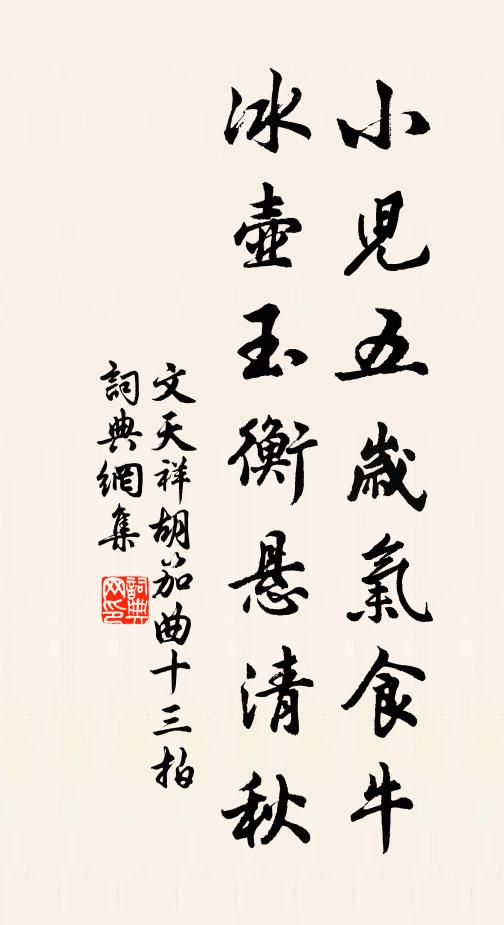 小兒五歲氣食牛
冰壺玉衡悬清秋
文天祥胡笳曲十三拍
詞典網集
詞典网印